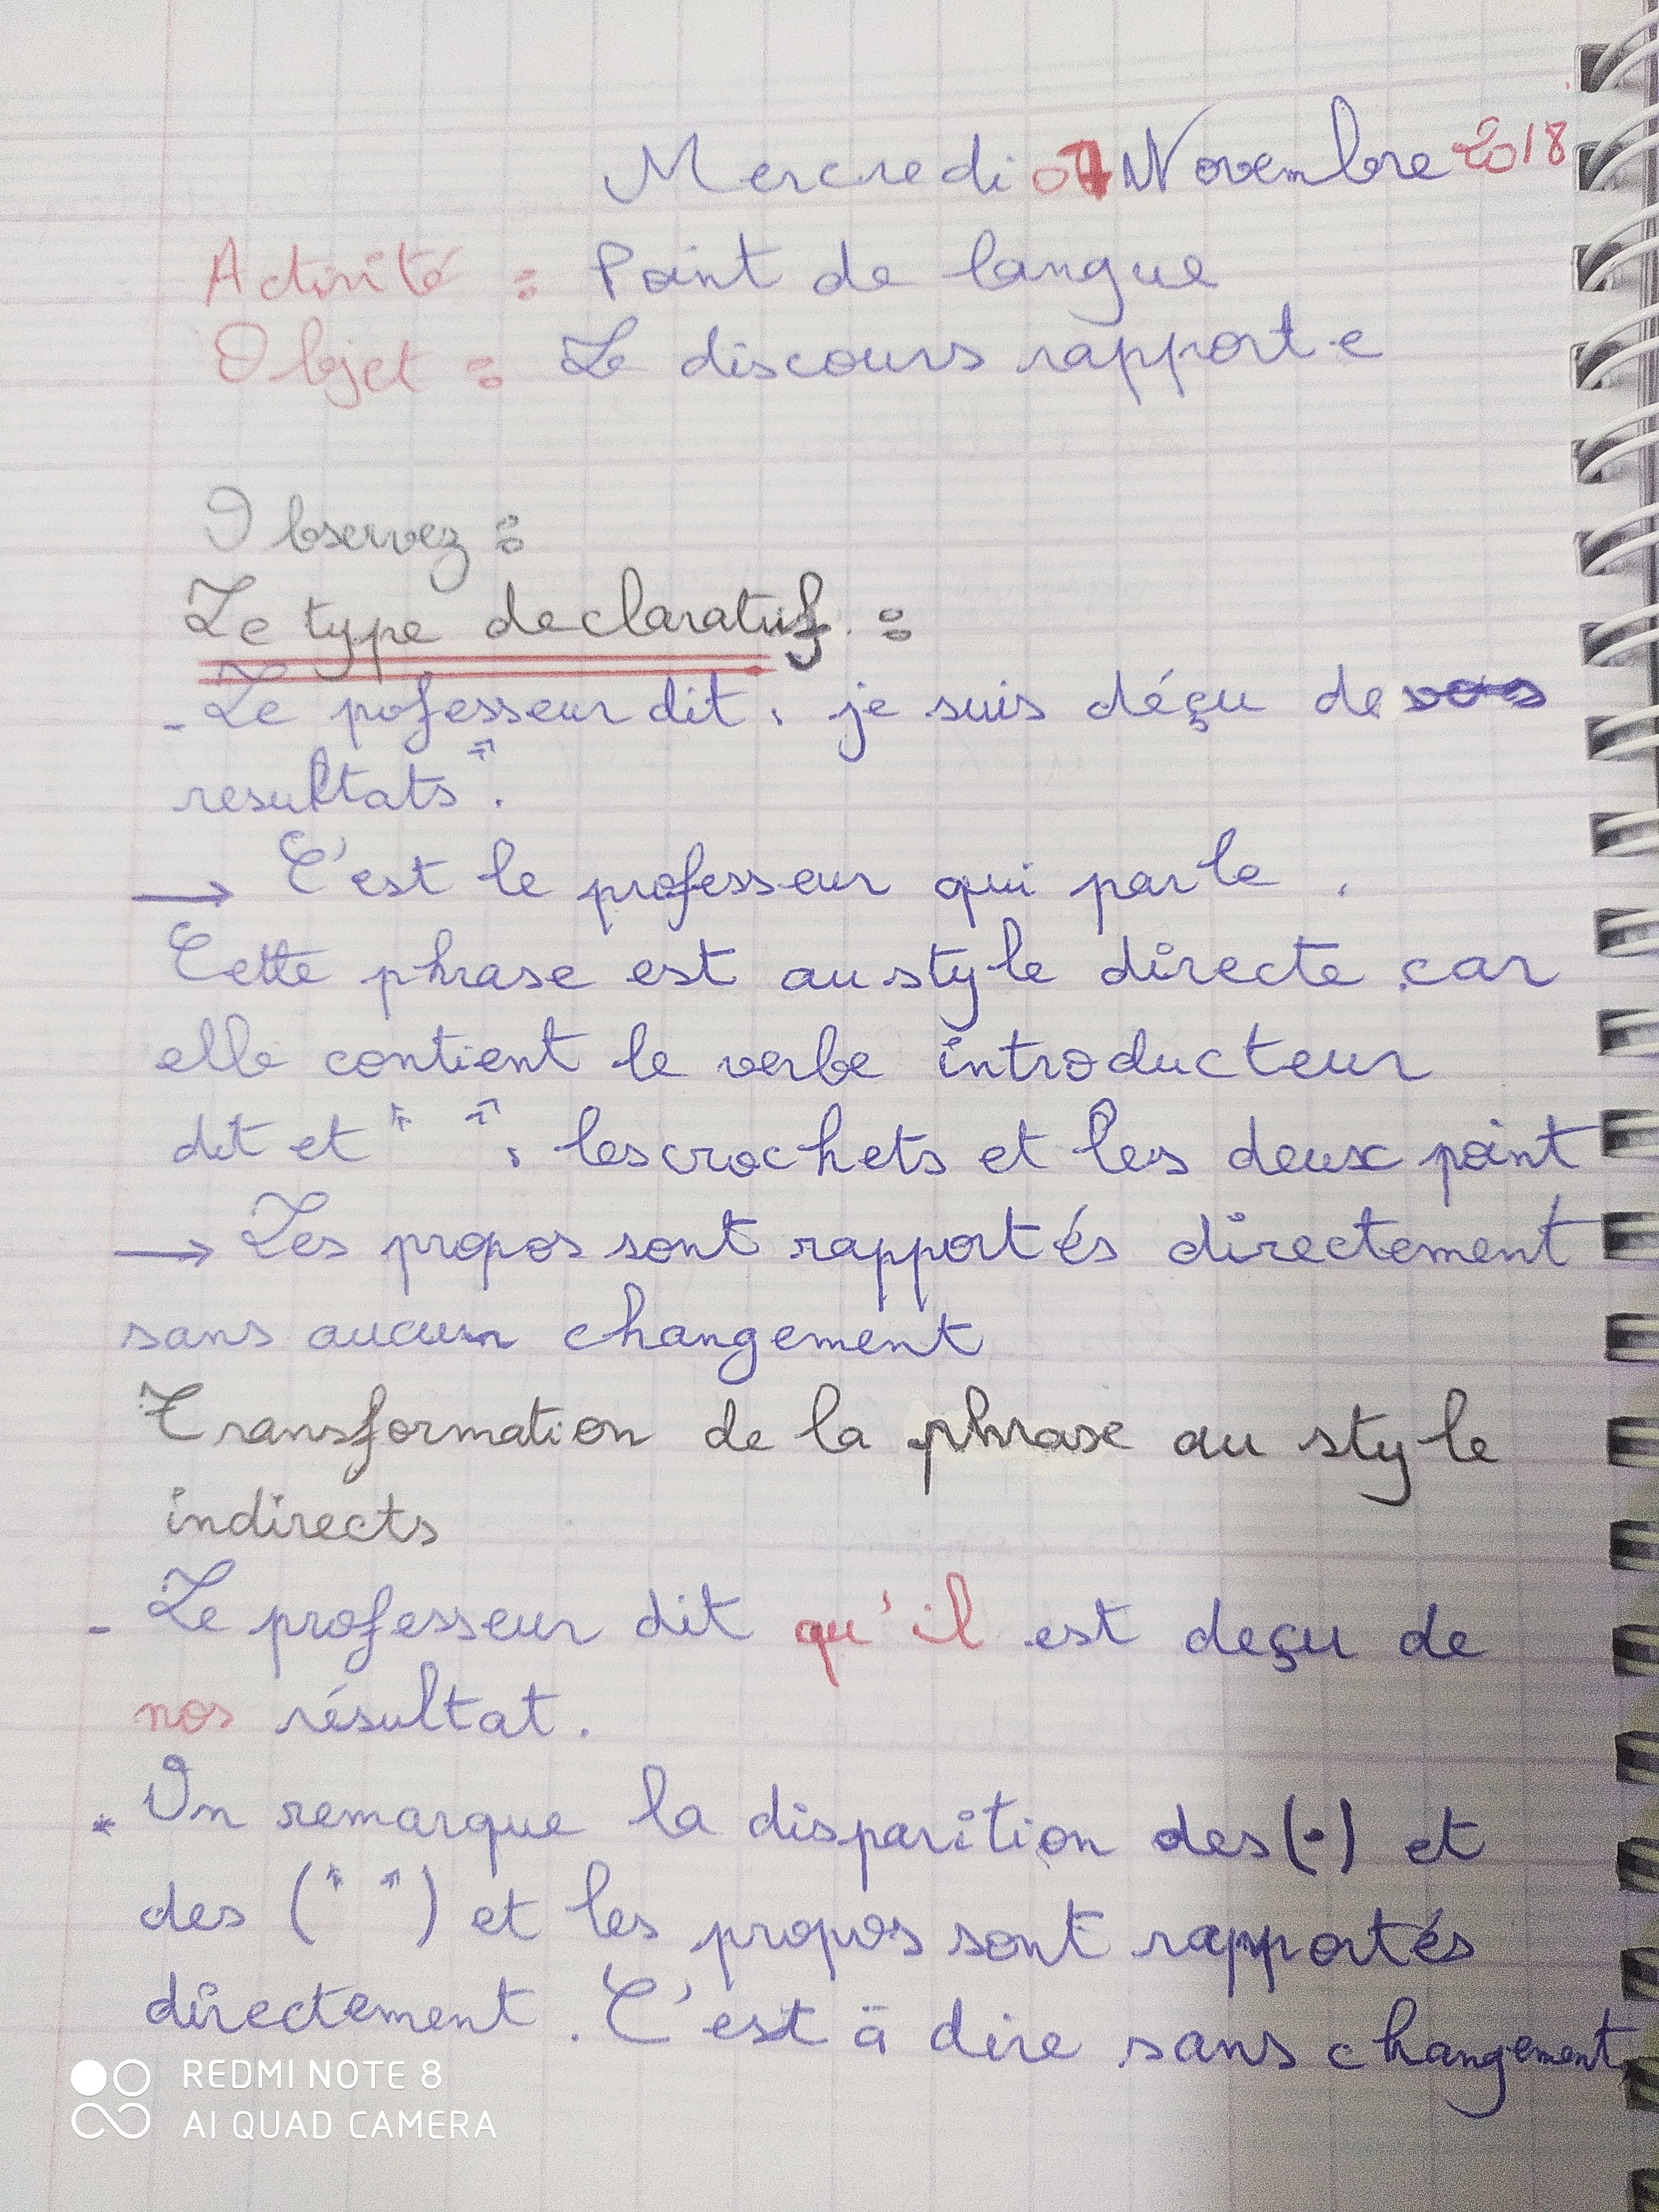 Mercredi 07 Novembre 2018
Activité : Point de langue
Objet : Le discours rapporte
Observez :
Le type declaratif :
- Le pofesseur dit : je suis déçu de vos
resultats".
→ C'est le professeur qui parle.
Cette phrase est au style directe car
elle contient le verbe introducteur
dit et " " : les crochets et les deux point
→ Les propos sont rapportés directement
sans aucun changement
Transformation de la phrase au style
indirects
- Le professeur dit qu'il est deçu de
nos résultat.
* On remarque la disparition des (:) et
des (" ") et les propos sont rapportés
directement. C'est à dire sans changement
REDMI NOTE 8
AI QUAD CAMERA